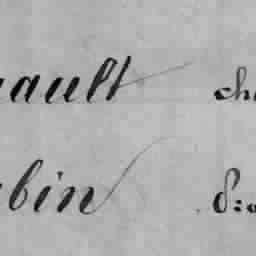 ault ch
bin d:o